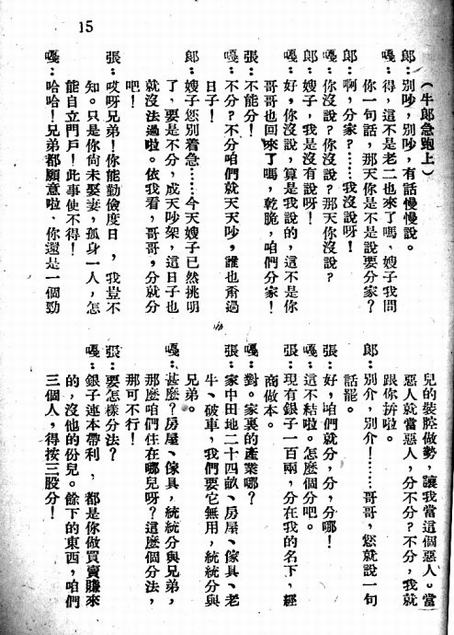 15
(牛郎急跑上)
郎：別吵，別吵，有話慢慢說。
嘎：得，這不是老二也來了嗎、嫂子我問
你一句話，那天你是不是說要分家？
郎：啊，分家？……我沒說呀！
嘎：你沒說？你沒說？那天你沒說？
郎：嫂子，我是沒有說呀！
嘎：好，你沒說，算是我說的，這不是你
哥哥也回來了嗎，乾脆，咱們分家！
張：不能分！
嘎：不分？不分咱們就天天吵，誰也甭過
日子！
郎：嫂子您別着急……今天嫂子已然挑明
了，要是不分，成天吵架，這日子也
就沒法過啦。依我看，哥哥，分就分
吧！
張：哎呀兄弟！你能勤儉度日，我豈不
知。只是你尚未娶妻，孤身一人，怎
能自立門戶！此事使不得！
嘎：哈哈！兄弟都願意啦、你還是一個勁
兒的裝腔做勢，讓我當這個惡人。當
惡人就當惡人，分不分？不分，我就
跟你拚啦。
郎：別介，別介！……哥哥，您就說一句
話罷。
張：好，咱們就分，分，分哪！
嘎：這不結啦。怎麼個分吧。
張：現有銀子一百兩，分在我的名下，經
商做本。
嘎：對。家裏的產業哪？
張：家中田地二十四畝、房屋、傢具、老
牛、破車，我們要它無用，統統分與
兄弟。
嘎：甚麼？房屋、傢具，統統分與兄弟，
那麼咱們住在哪兒呀？這麼個分法，
那可不行！
張：要怎樣分法？
嘎：銀子連本帶利，都是你做買賣賺來
的，沒他的份兒。餘下的東西，咱們
三個人，得按三股分！